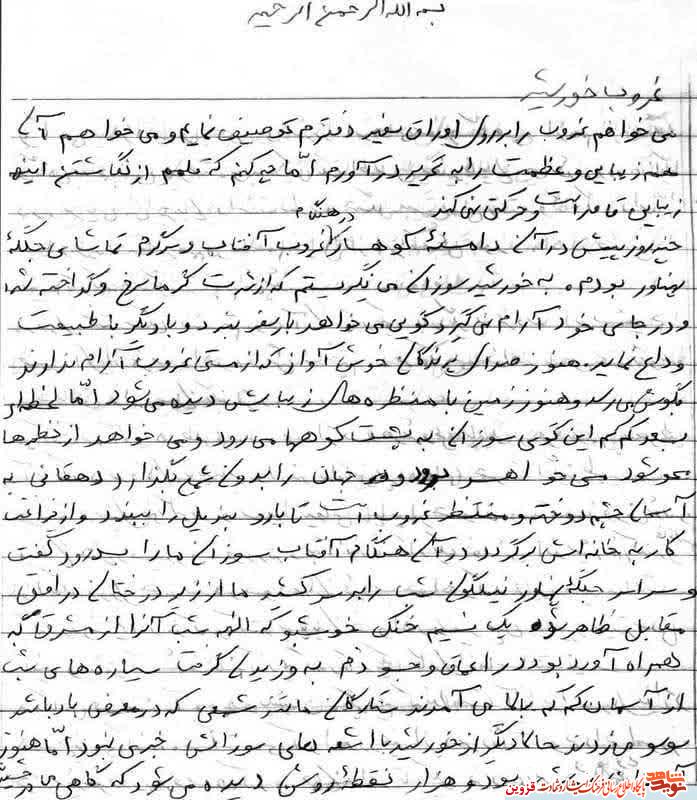 بسم الله الرحمن الرحیم
غروب خورشید
می خواهم غروب را بر روی اوراق سفید دفترم توصیف نمایم و می خواهم آن
همه زیبایی و عظمت را به تحریر در آورم امّا چه کنم که قلمم از نگاشتن اینهمه
زیبایی قاصر است و حرکتی نمی کند
چند روز پیش در آن دامنهٔ کوهسار در هنگام غروب آفتاب سرگرم تماشای جلگهٔ
پهناور بودم. به خورشید سوزان می نگریستم که از شدت گرما سرخ و گداخته شده
و در جای خود آرام نمی گیرد گویی می خواهد بار سفر بندد و بار دیگر با طبیعت
وداع نماید. هنوز صدای پرندگان خوش آواز که از مستی غروب آرام ندارند
بگوش می رسد و هنوز زمین با منظره های زیبایش دیده می شود امّا لحظه ای
بعد کم کم این گوی سوزان به پشت کوهها می رود و می خواهد از نظرها
محو شود می خواهد برود و جهان را بدون شمع بگذارد دهقانی به
آسمان چشم دوخته و منتظر غروب است تا بار دیگر منزل را ببیند و از فراغت
کار به خانه اش برگردد در آن هنگام آفتاب سوزان ما را بدرود گفت
و سراسر جلگهٔ پهناور نیلگون شب را بر سر کشید ماه از زیر درختان در افق
مقابل ظاهر شد یک نسیم خنک خوشبو که الهه شب آنرا از مشرق گاه
همراه آورد بود در اعماق وجودم به وزیدن گرفت ستاره های شب
از آسمان کم کم بالا می آمدند ستارگان مانند شمعی که در معرض باد باشد
سوسو می زدند حالا دیگر از خورشید با اشعه های سوزانش خبری نبود امّا هنوز
بود و هزار نقطهٔ روشن دیده می شود که گاهی
نوید شاهد
پایگاه اطلاع رسانی فرهنگ ایثار و شهادت قزوین